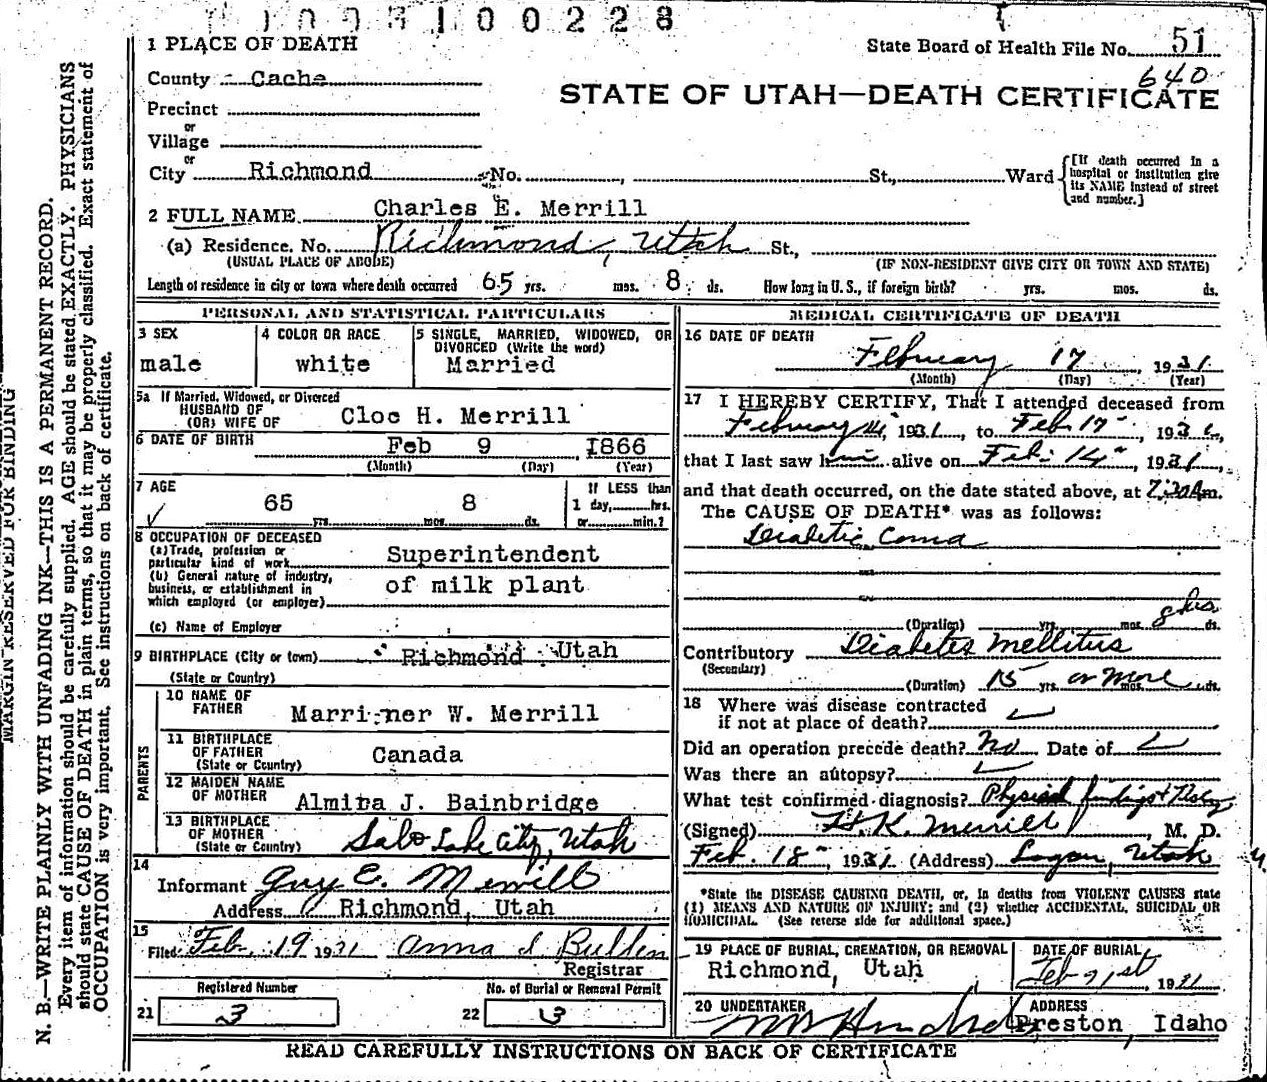 1003100228
1 PLACE OF DEATH
State Board of Health File No. 51
640
County Cache
STATE OF UTAH—DEATH CERTIFICATE
Precinct
or
Village
or
City Richmond No. , St., Ward
[If death occurred in a hospital or institution give its NAME instead of street and number.]
2 FULL NAME Charles E. Merrill
(a) Residence. No. Richmond, Utah St.,
(USUAL PLACE OF ABODE) (IF NON-RESIDENT GIVE CITY OR TOWN AND STATE)
Length of residence in city or town where death occurred 65 yrs. mos. 8 ds. How long in U. S., if foreign birth? yrs. mos. ds.
PERSONAL AND STATISTICAL PARTICULARS
3 SEX
male
4 COLOR OR RACE
white
5 SINGLE, MARRIED, WIDOWED, OR
DIVORCED (Write the word)
Married
5a If Married, Widowed, or Divorced
HUSBAND OF
(OR) WIFE OF Cloe H. Merrill
6 DATE OF BIRTH Feb 9, 1866
(Month) (Day) (Year)
7 AGE
65 yrs. mos. 8 ds.
If LESS than
1 day, hrs.
or min.?
8 OCCUPATION OF DECEASED
(a) Trade, profession or
particular kind of work Superintendent
(b) General nature of industry,
business, or establishment in
which employed (or employer) of milk plant
(c) Name of Employer
9 BIRTHPLACE (City or town) Richmond Utah
(State or Country)
PARENTS
10 NAME OF
FATHER Marriner W. Merrill
11 BIRTHPLACE
OF FATHER
(State or Country) Canada
12 MAIDEN NAME
OF MOTHER Almira J. Bainbridge
13 BIRTHPLACE
OF MOTHER
(State or Country) Salt Lake City, Utah
14
Informant Guy E. Merrill
Address Richmond, Utah
15
Filed Feb. 19 1931 Anna S Bullen
Registrar
Registered Number
21 3
No. of Burial or Removal Permit
22 3
MEDICAL CERTIFICATE OF DEATH
16 DATE OF DEATH
February 17 1931
(Month) (Day) (Year)
17 I HEREBY CERTIFY, That I attended deceased from
February 14, 1931, to Feb. 17, 1931,
that I last saw him alive on Feb. 14, 1931,
and that death occurred, on the date stated above, at 7:30 Am.
The CAUSE OF DEATH* was as follows:
Diabetic Coma
(Duration) yrs. mos. 8 hrs ds.
Contributory Diabetes Mellitus
(Secondary)
(Duration) 15 yrs. or more mos. ds.
18 Where was disease contracted
if not at place of death?
Did an operation precede death? No Date of
Was there an autopsy?
What test confirmed diagnosis? Physical findings +
(Signed) H. K. Merrill, M. D.
Feb. 18 1931 (Address) Logan, Utah
*State the DISEASE CAUSING DEATH, or, in deaths from VIOLENT CAUSES state
(1) MEANS AND NATURE OF INJURY; and (2) whether ACCIDENTAL, SUICIDAL OR
HOMICIDAL. (See reverse side for additional space.)
19 PLACE OF BURIAL, CREMATION, OR REMOVAL
Richmond, Utah
DATE OF BURIAL
Feb 21st 1931
20 UNDERTAKER
ADDRESS
Preston, Idaho
READ CAREFULLY INSTRUCTIONS ON BACK OF CERTIFICATE
MARGIN RESERVED FOR BINDING
N. B.—WRITE PLAINLY WITH UNFADING INK—THIS IS A PERMANENT RECORD.
Every item of information should be carefully supplied. AGE should be stated EXACTLY. PHYSICIANS
should state CAUSE OF DEATH in plain terms, so that it may be properly classified. Exact statement of
OCCUPATION is very important. See instructions on back of certificate.